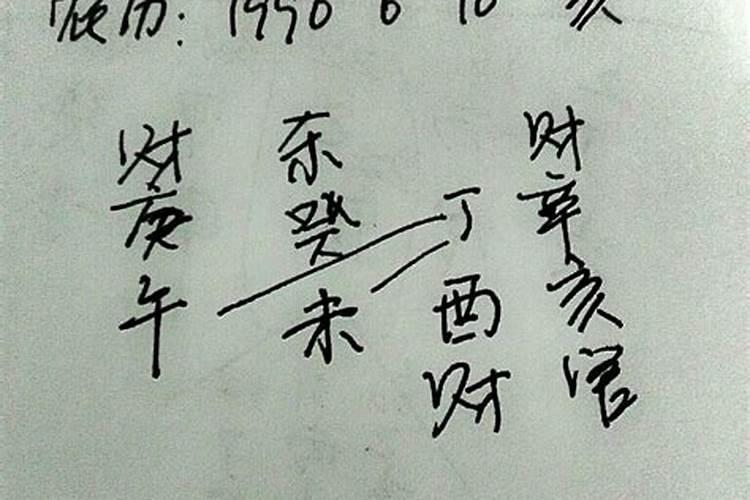 农历: 1990 6 10 亥
财 杀 财
庚 癸 丁 辛
午 未 酉 亥
财 官